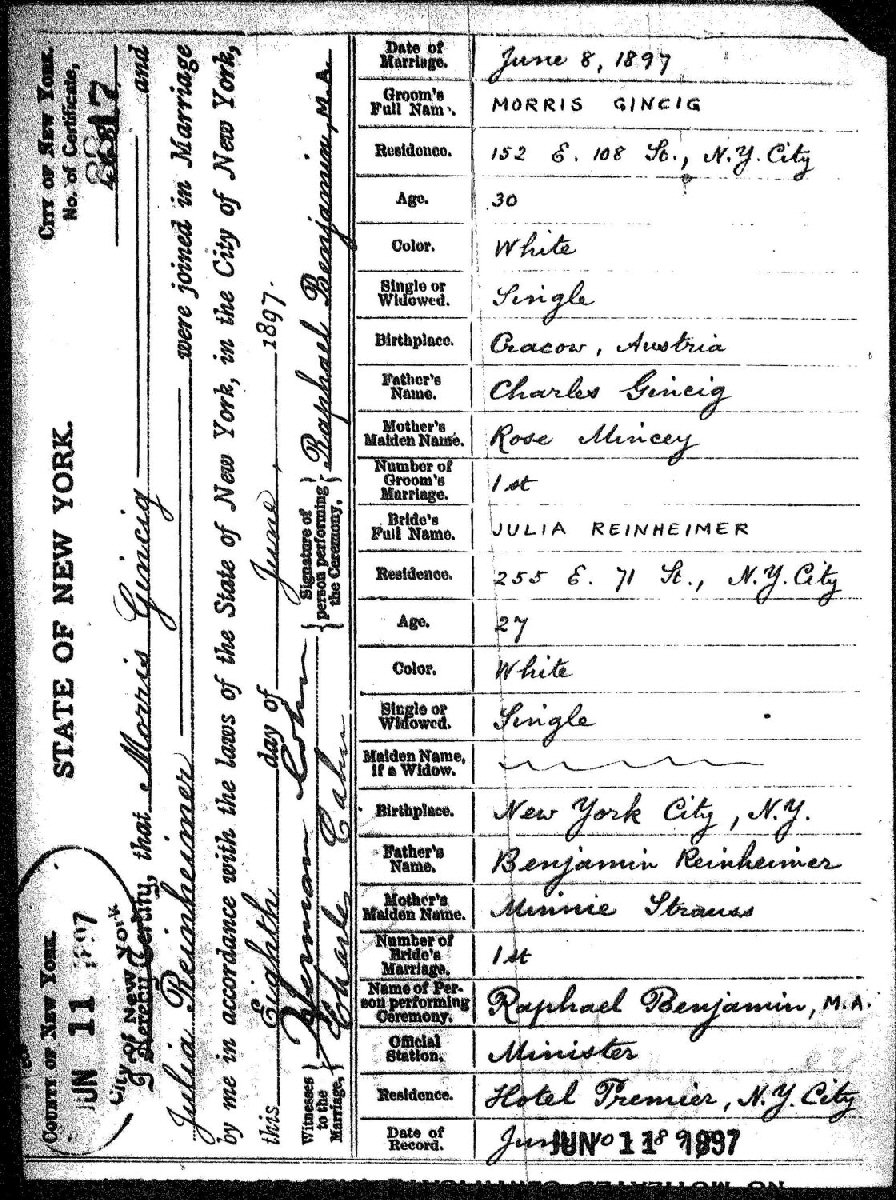 STATE OF NEW YORK.
COUNTY OF NEW YORK.
CITY OF NEW YORK.
No. of Certificate,
JUN 11 1897
City of New York
I Hereby Certify, that Morris Gincig and
Julia Reinheimer were joined in Marriage
by me in accordance with the laws of the State of New York, in the City of New York,
this Eighth day of June, 1897.
Witnesses to the Marriage,
Herman Cohn
Charles Cahn
Signature of person performing the Ceremony,
Raphael Benjamin, M.A.
Date of Marriage. June 8, 1897
Groom's Full Name. MORRIS GINCIG
Residence. 152 E. 108 St., N.Y. City
Age. 30
Color. White
Single or Widowed. Single
Birthplace. Cracow, Austria
Father's Name. Charles Gincig
Mother's Maiden Name. Rose Mincey
Number of Groom's Marriage. 1st
Bride's Full Name. JULIA REINHEIMER
Residence. 255 E. 71 St., N.Y. City
Age. 27
Color. White
Single or Widowed. Single
Maiden Name, if a Widow.
Birthplace. New York City, N.Y.
Father's Name. Benjamin Reinheimer
Mother's Maiden Name. Minnie Strauss
Number of Bride's Marriage. 1st
Name of Person performing Ceremony. Raphael Benjamin, M.A.
Official Station. Minister
Residence. Hotel Premier, N.Y. City
Date of Record. JUN 11 1897